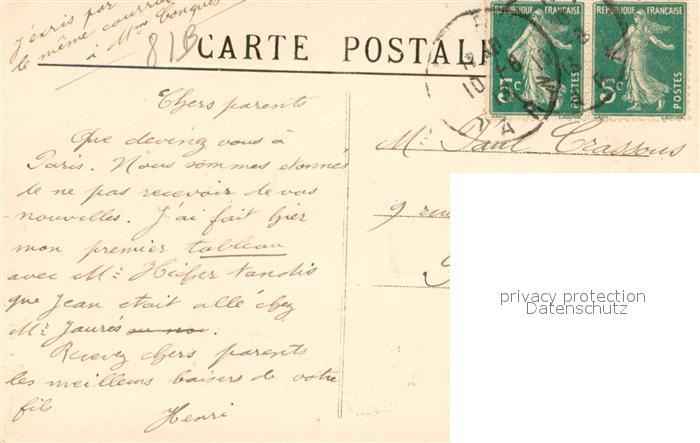 j'écris par
le même courrier
à Mme Conquet
81B
CARTE POSTALE
REPUBLIQUE FRANÇAISE
POSTES
5c
REPUBLIQUE FRANÇAISE
POSTES
5c
Chers parents
Que devenez vous à
Paris. Nous sommes etonnés
de ne pas recevoir de vos
nouvelles. J'ai fait hier
mon premier tableau
avec Mr tandis
que Jean etait allé chez
Mr Jaurés.
Recevez chers parents
les meilleurs baisers de votre
fils
Henri
Mr Paul Crassous
9 rue
privacy protection
Datenschutz